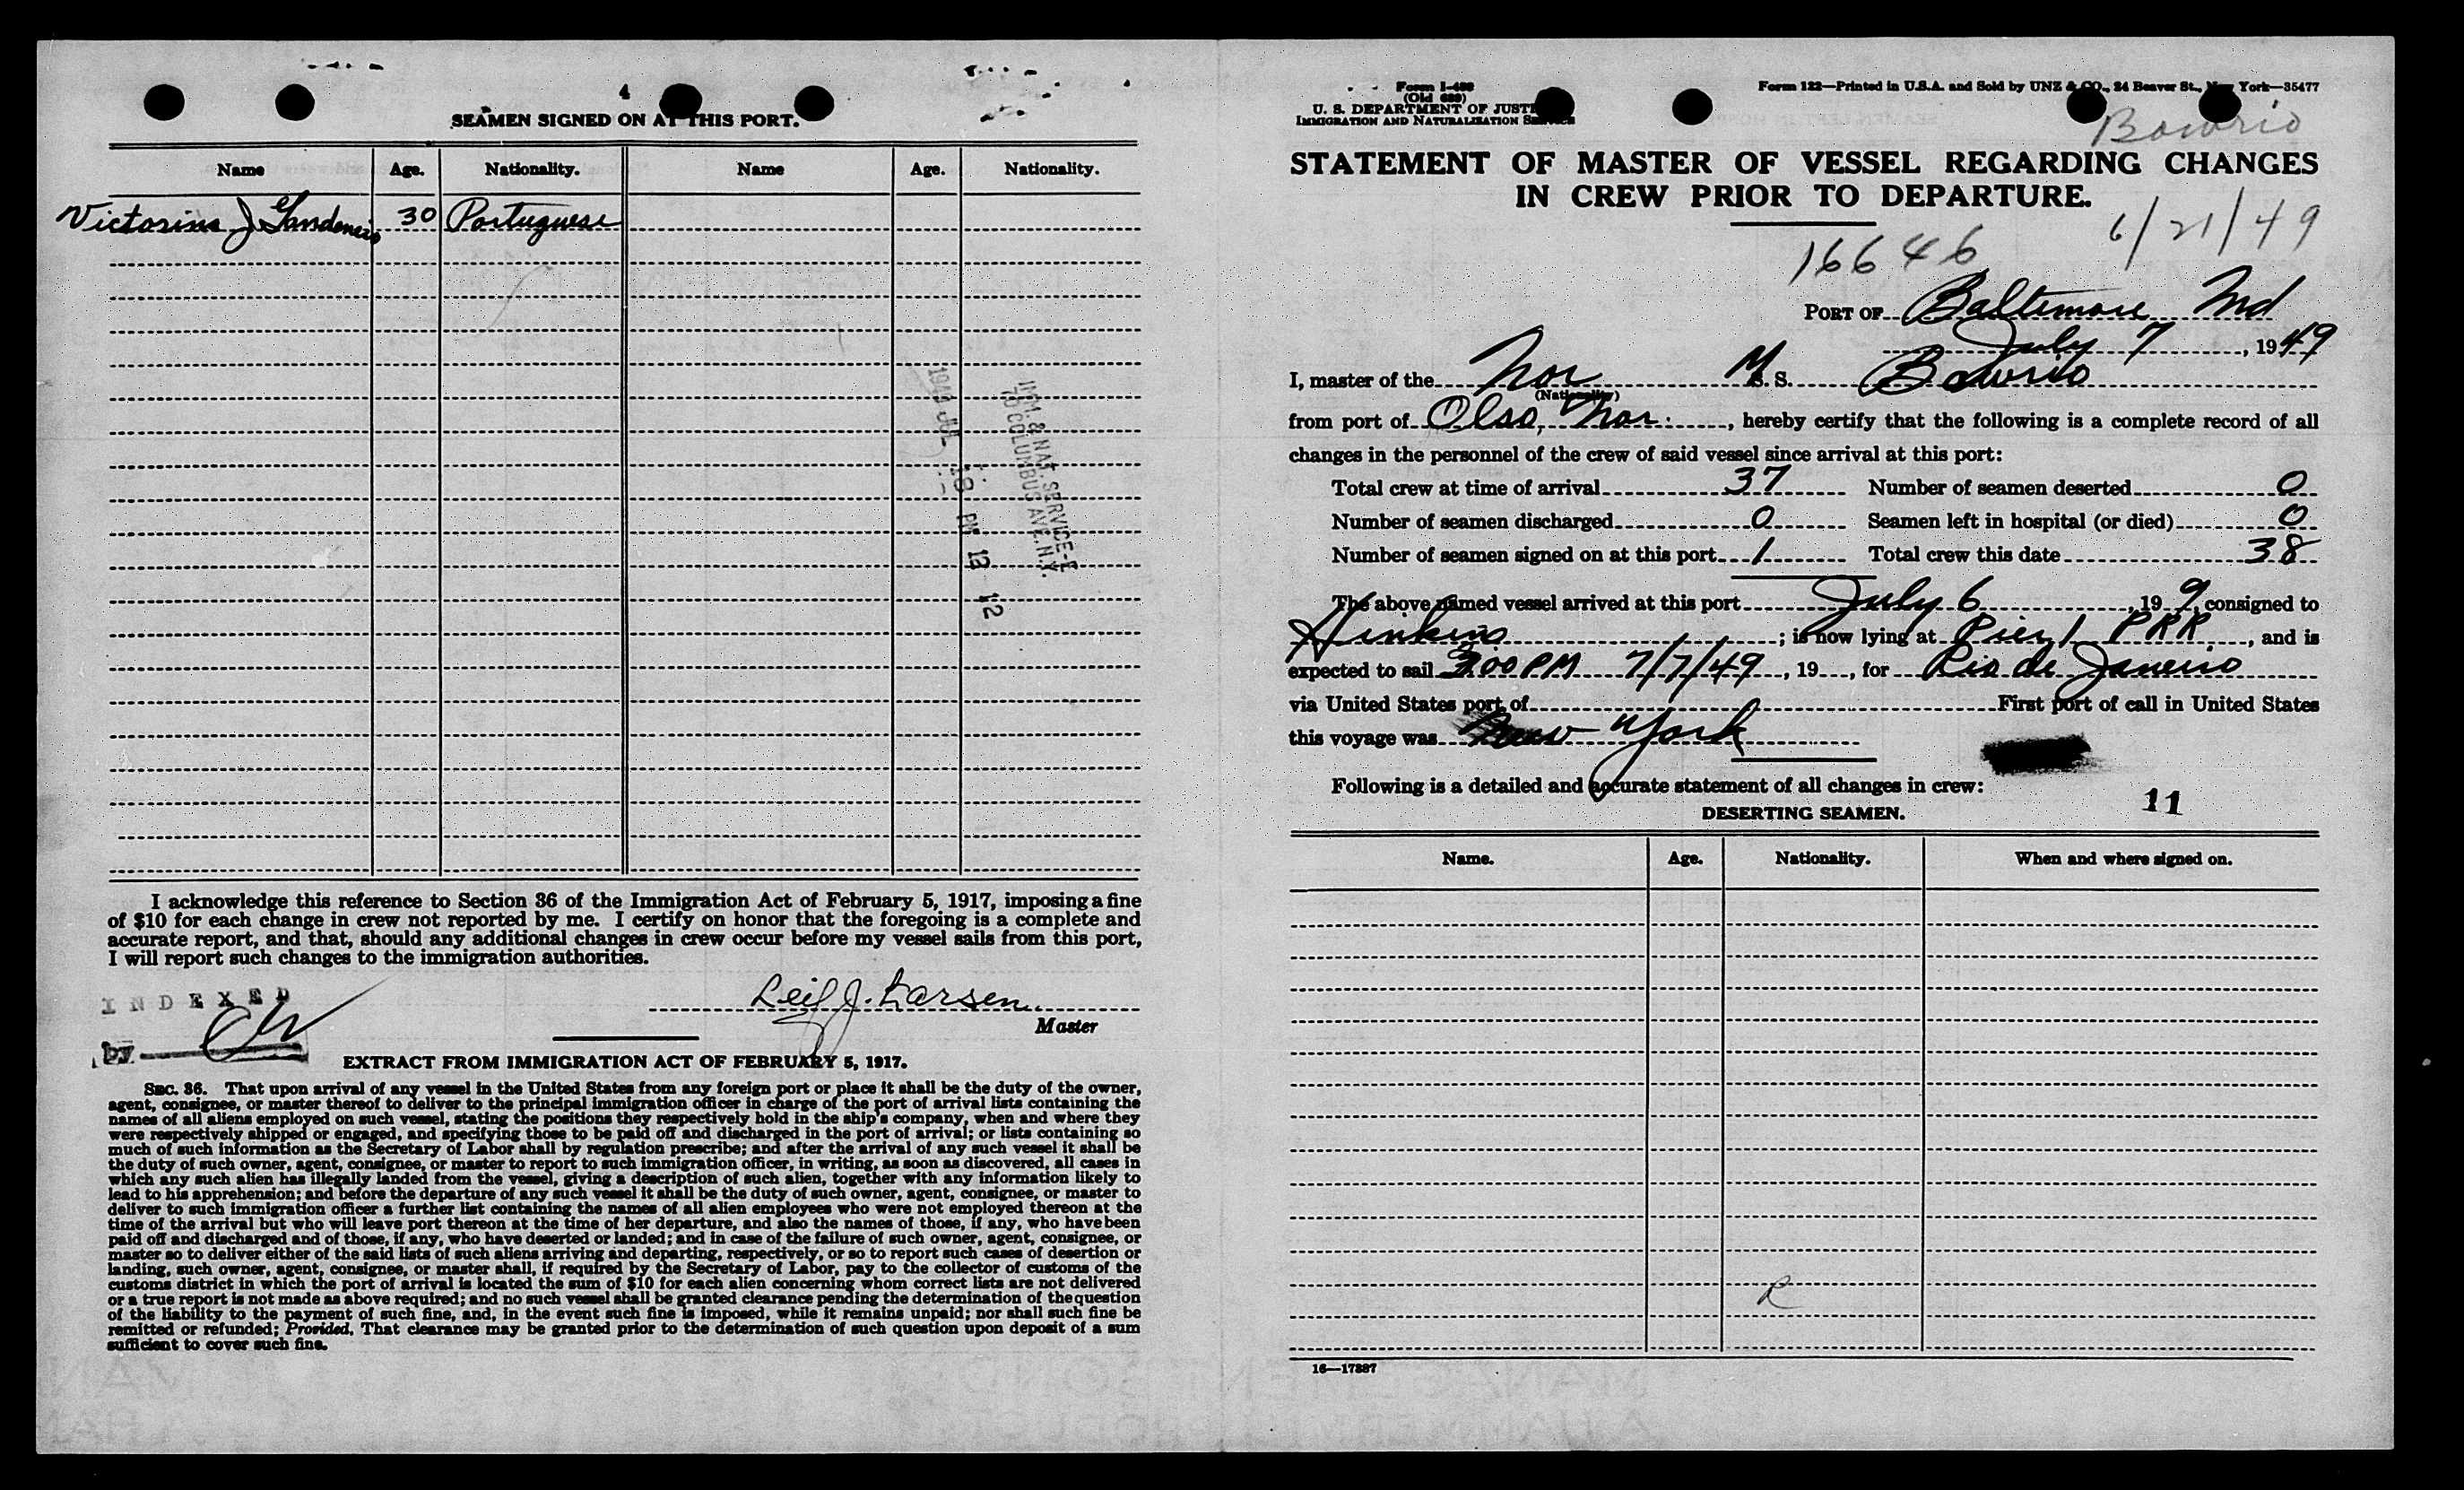 4
SEAMEN SIGNED ON AT THIS PORT.
Name Age. Nationality. Name Age. Nationality.
Victorino J Gaudencio 30 Portuguese
IMM. & NAT. SERVICE-E
70 COLUMBUS AVE. N.Y.
1949 JUL 18 PM 12 12
I acknowledge this reference to Section 36 of the Immigration Act of February 5, 1917, imposing a fine
of $10 for each change in crew not reported by me. I certify on honor that the foregoing is a complete and
accurate report, and that, should any additional changes in crew occur before my vessel sails from this port,
I will report such changes to the immigration authorities.
INDEXED
by
Leif J. Larsen
Master
EXTRACT FROM IMMIGRATION ACT OF FEBRUARY 5, 1917.
SEC. 36. That upon arrival of any vessel in the United States from any foreign port or place it shall be the duty of the owner,
agent, consignee, or master thereof to deliver to the principal immigration officer in charge of the port of arrival lists containing the
names of all aliens employed on such vessel, stating the positions they respectively hold in the ship's company, when and where they
were respectively shipped or engaged, and specifying those to be paid off and discharged in the port of arrival; or lists containing so
much of such information as the Secretary of Labor shall by regulation prescribe; and after the arrival of any such vessel it shall be
the duty of such owner, agent, consignee, or master to report to such immigration officer, in writing, as soon as discovered, all cases in
which any such alien has illegally landed from the vessel, giving a description of such alien, together with any information likely to
lead to his apprehension; and before the departure of any such vessel it shall be the duty of such owner, agent, consignee, or master to
deliver to such immigration officer a further list containing the names of all alien employees who were not employed thereon at the
time of the arrival but who will leave port thereon at the time of her departure, and also the names of those, if any, who have been
paid off and discharged and of those, if any, who have deserted or landed; and in case of the failure of such owner, agent, consignee, or
master so to deliver either of the said lists of such aliens arriving and departing, respectively, or so to report such cases of desertion or
landing, such owner, agent, consignee, or master shall, if required by the Secretary of Labor, pay to the collector of customs of the
customs district in which the port of arrival is located the sum of $10 for each alien concerning whom correct lists are not delivered
or a true report is not made as above required; and no such vessel shall be granted clearance pending the determination of the question
of the liability to the payment of such fine, and, in the event such fine is imposed, while it remains unpaid; nor shall such fine be
remitted or refunded; Provided, That clearance may be granted prior to the determination of such question upon deposit of a sum
sufficient to cover such fine.
Form I-489
(Old 689)
U. S. DEPARTMENT OF JUSTICE
IMMIGRATION AND NATURALIZATION SERVICE
Form 122—Printed in U.S.A. and Sold by UNZ & CO., 24 Beaver St., New York—35477
Bowrio
STATEMENT OF MASTER OF VESSEL REGARDING CHANGES
IN CREW PRIOR TO DEPARTURE.
16646 6/21/49
PORT OF Baltimore Md
July 7, 1949
I, master of the Nor M. S. Bowrio
(Nationality)
from port of Olso, Nor., hereby certify that the following is a complete record of all
changes in the personnel of the crew of said vessel since arrival at this port:
Total crew at time of arrival 37 Number of seamen deserted 0
Number of seamen discharged 0 Seamen left in hospital (or died) 0
Number of seamen signed on at this port 1 Total crew this date 38
The above named vessel arrived at this port July 6, 199, consigned to
Hinkins; is now lying at Pier 1 PRR, and is
expected to sail 3:00 PM 7/7/49, 19, for Rio de Janeiro
via United States port of First port of call in United States
this voyage was New York
Following is a detailed and accurate statement of all changes in crew:
11
DESERTING SEAMEN.
Name. Age. Nationality. When and where signed on.
R
16—17887